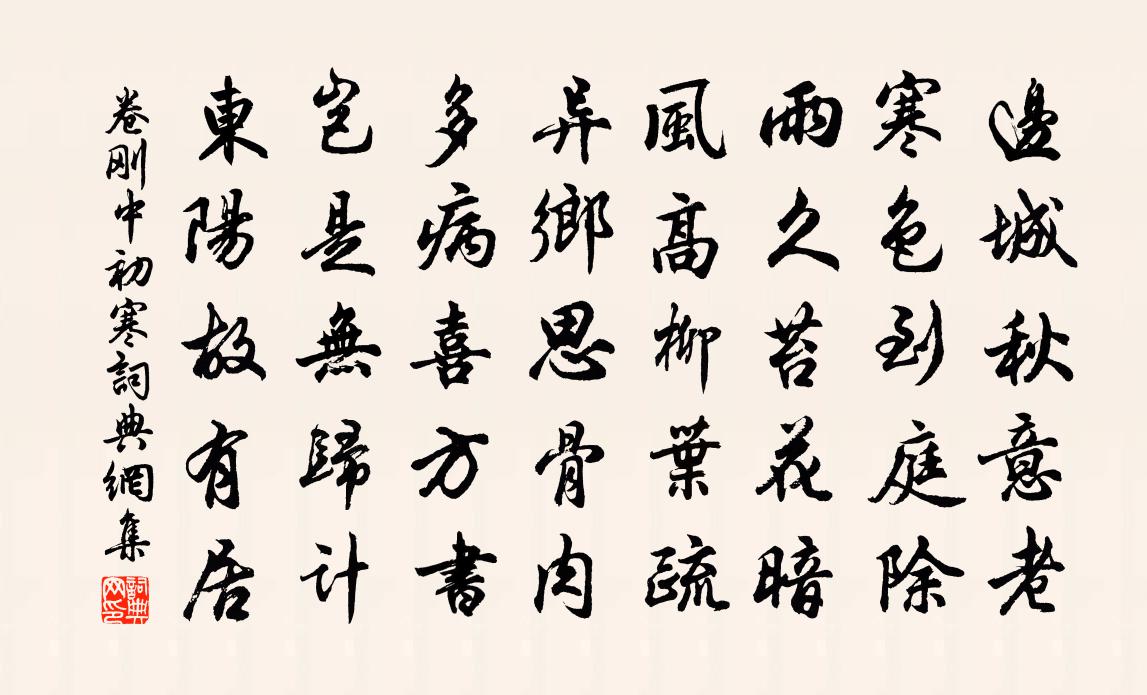 邊城秋意老
寒色到庭除
雨久苔花暗
風高柳葉疏
异鄉思骨肉
多病喜方書
豈是無歸計
東陽故有居
卷剛中初寒詞典網集
詞典网印